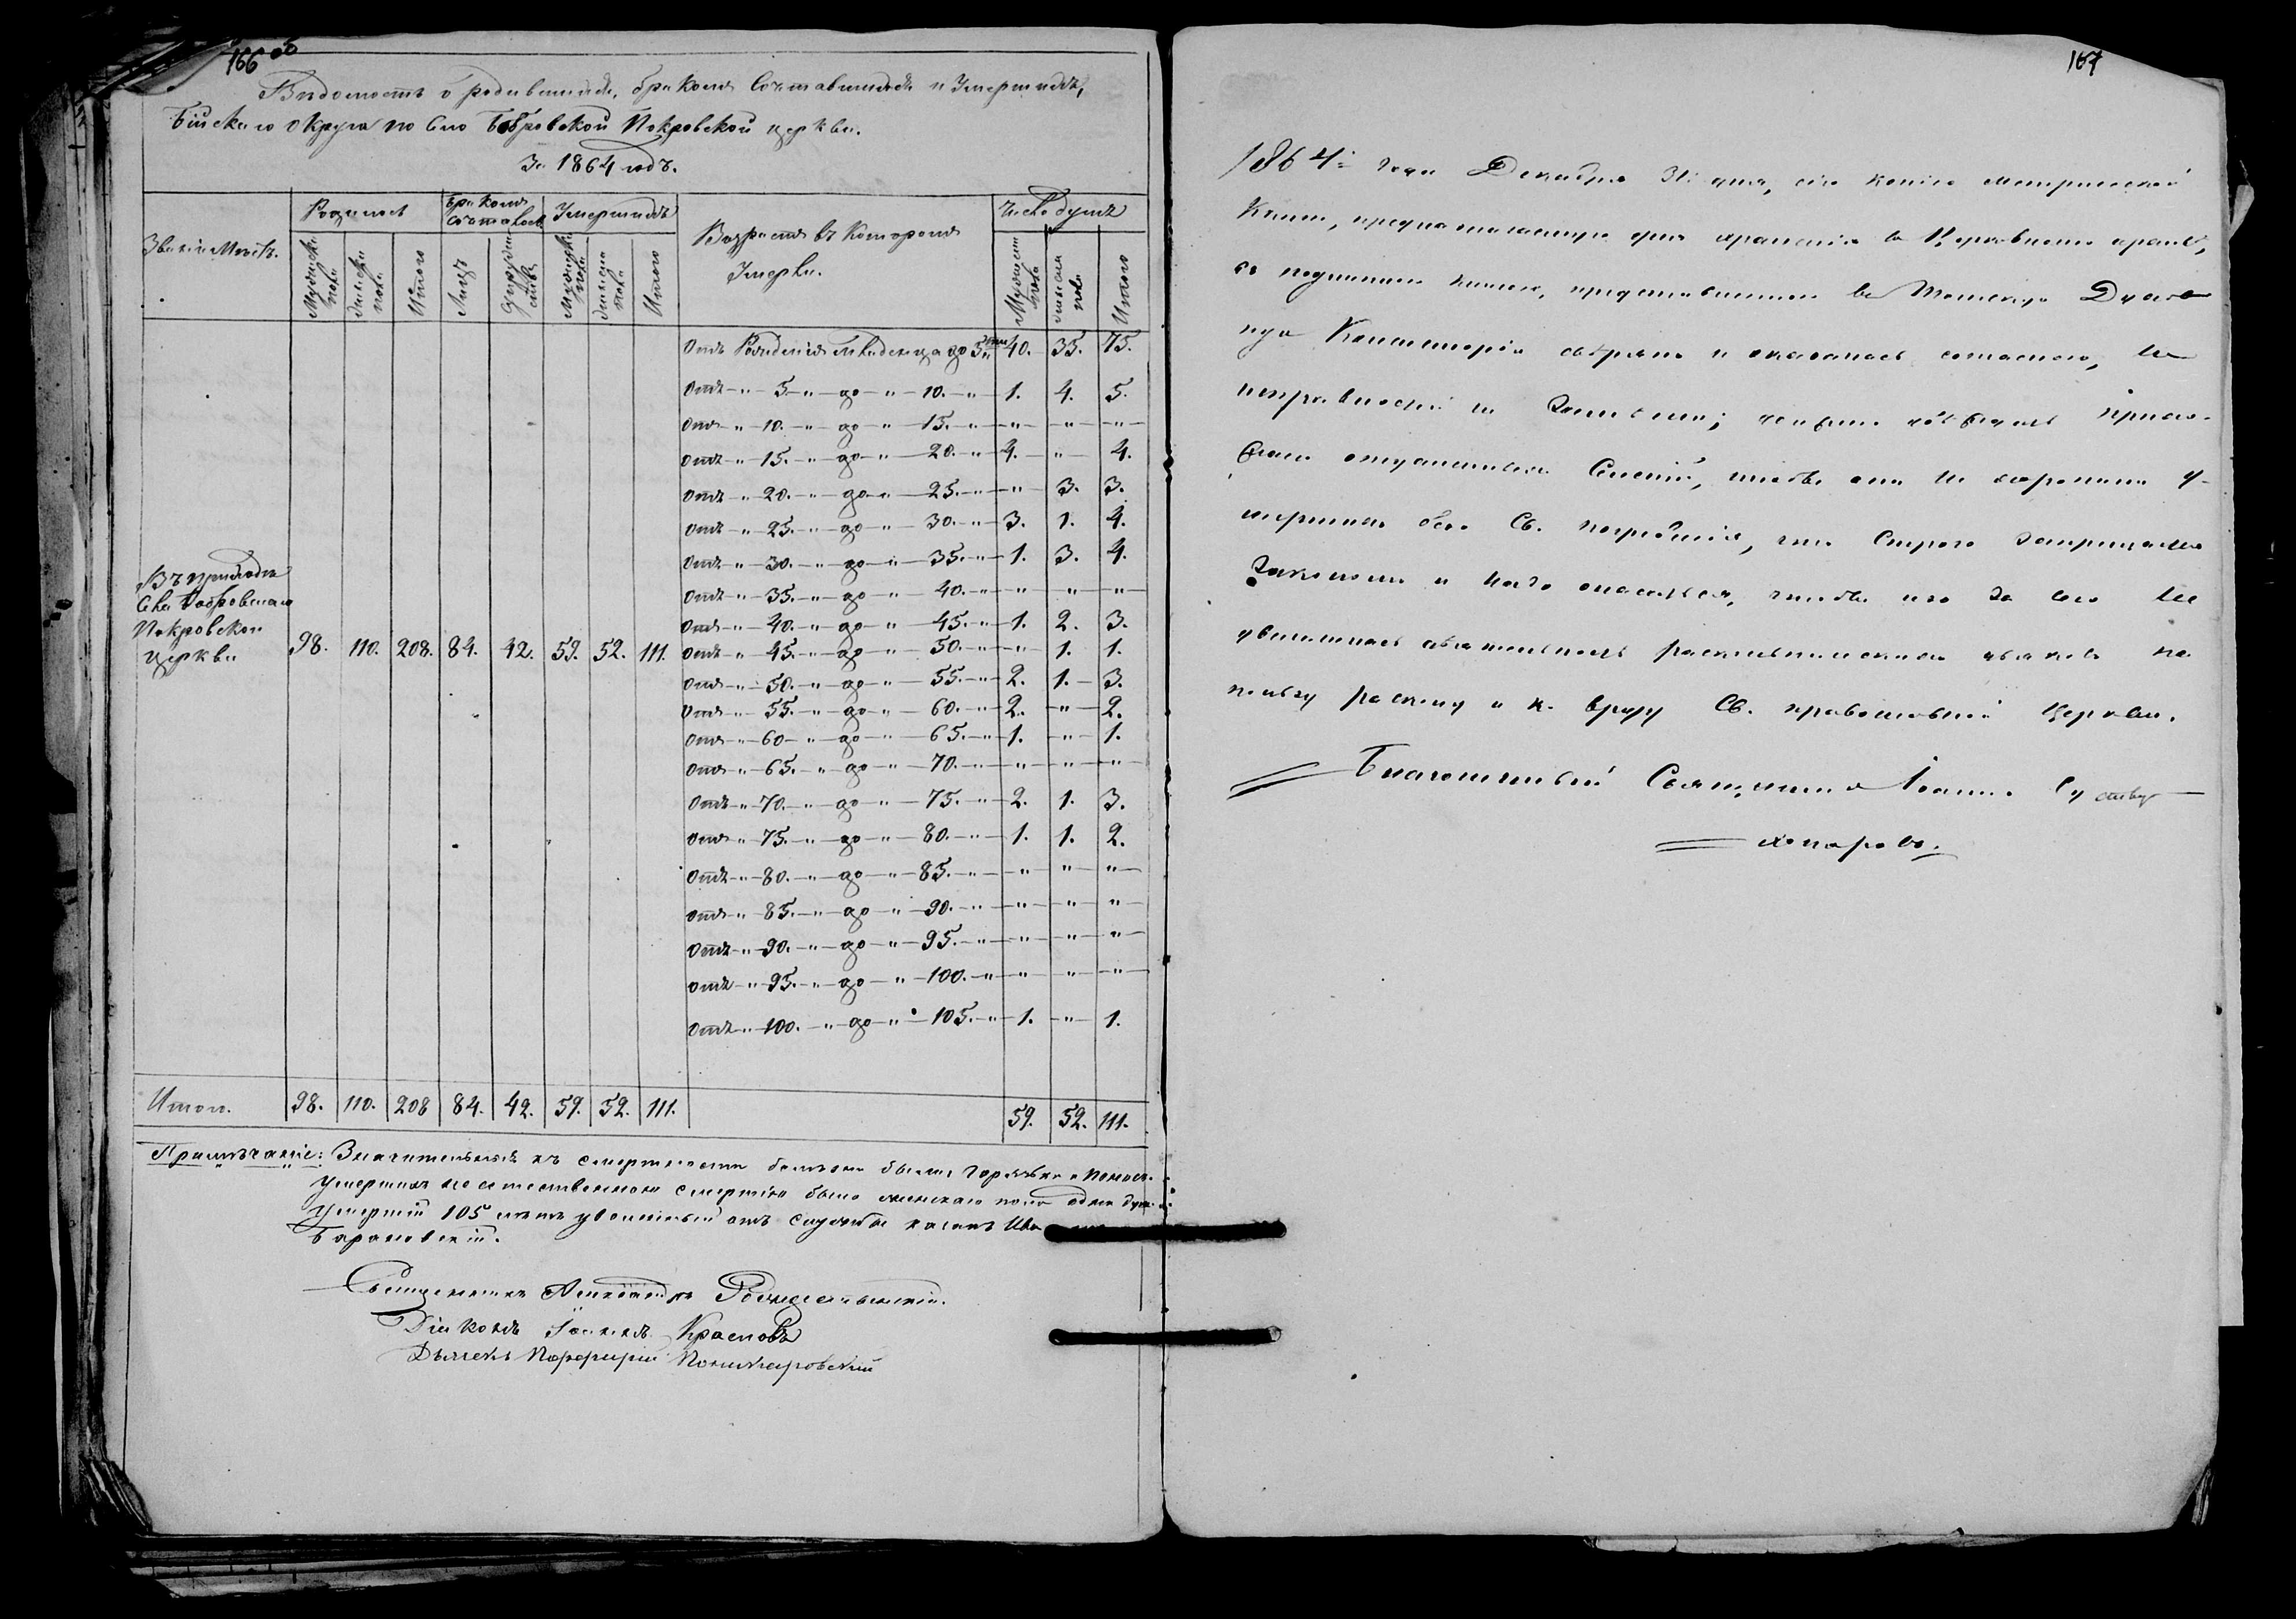 166 об
Вѣдомость о родившихся, бракомъ сочетавшихся и умершихъ,
Бійскаго округа по Селу Бобровской Покровской церкви.
За 1864 годъ.
Званіе Мѣстъ. Родилось Бракомъ сочеталось Умершихъ Возрастъ въ которомъ умерли. Число душъ
Мужеска пола Женска пола Итого Лицъ Супружествъ Мужеска пола Женска пола Итого Мужеска пола Женска пола Итого
Отъ Рожденія младенца до 5 лѣтъ 40. 35. 75.
Отъ " 5. " до " 10. " 1. 4. 5.
Отъ " 10. " до " 15. " " " "
Отъ " 15. " до " 20. " 4. " 4.
Отъ " 20. " до " 25. " " 3. 3.
Отъ " 25. " до " 30. " 3. 1. 4.
Отъ " 30. " до " 35. " 1. 3. 4.
Отъ " 35. " до " 40. " " " "
Отъ " 40. " до " 45. " 1. 2. 3.
Въ приходѣ
Села Бобровскаго
Покровской
церкви 98. 110. 208. 84. 42. 59. 52. 111. Отъ " 45. " до " 50. " " 1. 1.
Отъ " 50. " до " 55. " 2. 1. 3.
Отъ " 55. " до " 60. " 2. " 2.
Отъ " 60 " до " 65. " 1. " 1.
Отъ " 65. " до " 70. " " " "
Отъ " 70. " до " 75. " 2. 1. 3.
Отъ " 75. " до " 80. " 1. 1. 2.
Отъ " 80. " до " 85. " " " "
Отъ " 85. " до " 90. " " " "
Отъ " 90. " до " 95. " " " "
Отъ " 95. " до " 100. " " " "
Отъ " 100. " до " 105. " 1. " 1.
Итого. 98. 110. 208 84. 42. 59. 52. 111. 59. 52. 111.
Примѣчаніе: Значительныя къ смертности болѣзни были: горячка и поносъ.
Умершихъ неестественною смертію было женскаго пола одна душа.
Умершій 105 лѣтъ уволенный отъ службы казакъ
Барановскій.
Священникъ Александръ Рождественскій.
Діаконъ Іоаннъ Красновъ
Дьячекъ Порфирій
167
1864 года Декабря 31 дня, сія копія метрической
книги, предполагаемую для храненія въ Церковномъ архивѣ,
съ подлинною книгою, представленною въ Томскую Духов
ную Консисторію свѣрена и оказалась согласною, но
неправильностей не замѣчено;
чтобы они не хоронили у-
мершихъ безъ Св. погребенія, что строго запрещается
Закономъ и надо опасаться, чтобы изъ за сего не
увеличилась
пользу расколу и ко вреду Св. православной Церкви.
Благочинный Священникъ Іоаннъ